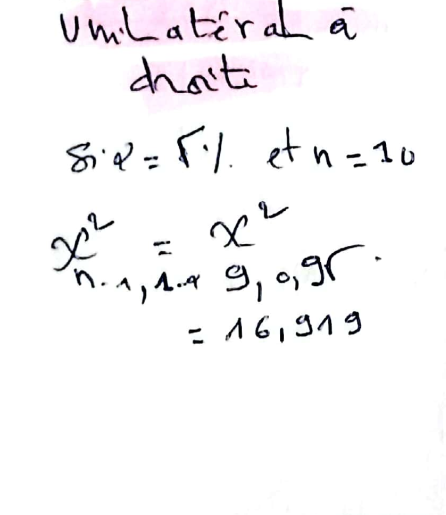 Unilatéral à
droite
si α = 5% et n = 10
x² n-1, 1-α = x² 9, 0,95.
= 16,919